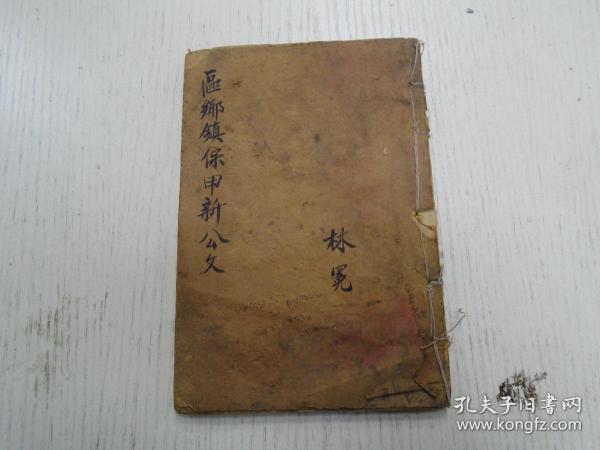 區鄉鎮保甲新公文
林冕
孔夫子旧书网
www.kongfz.com